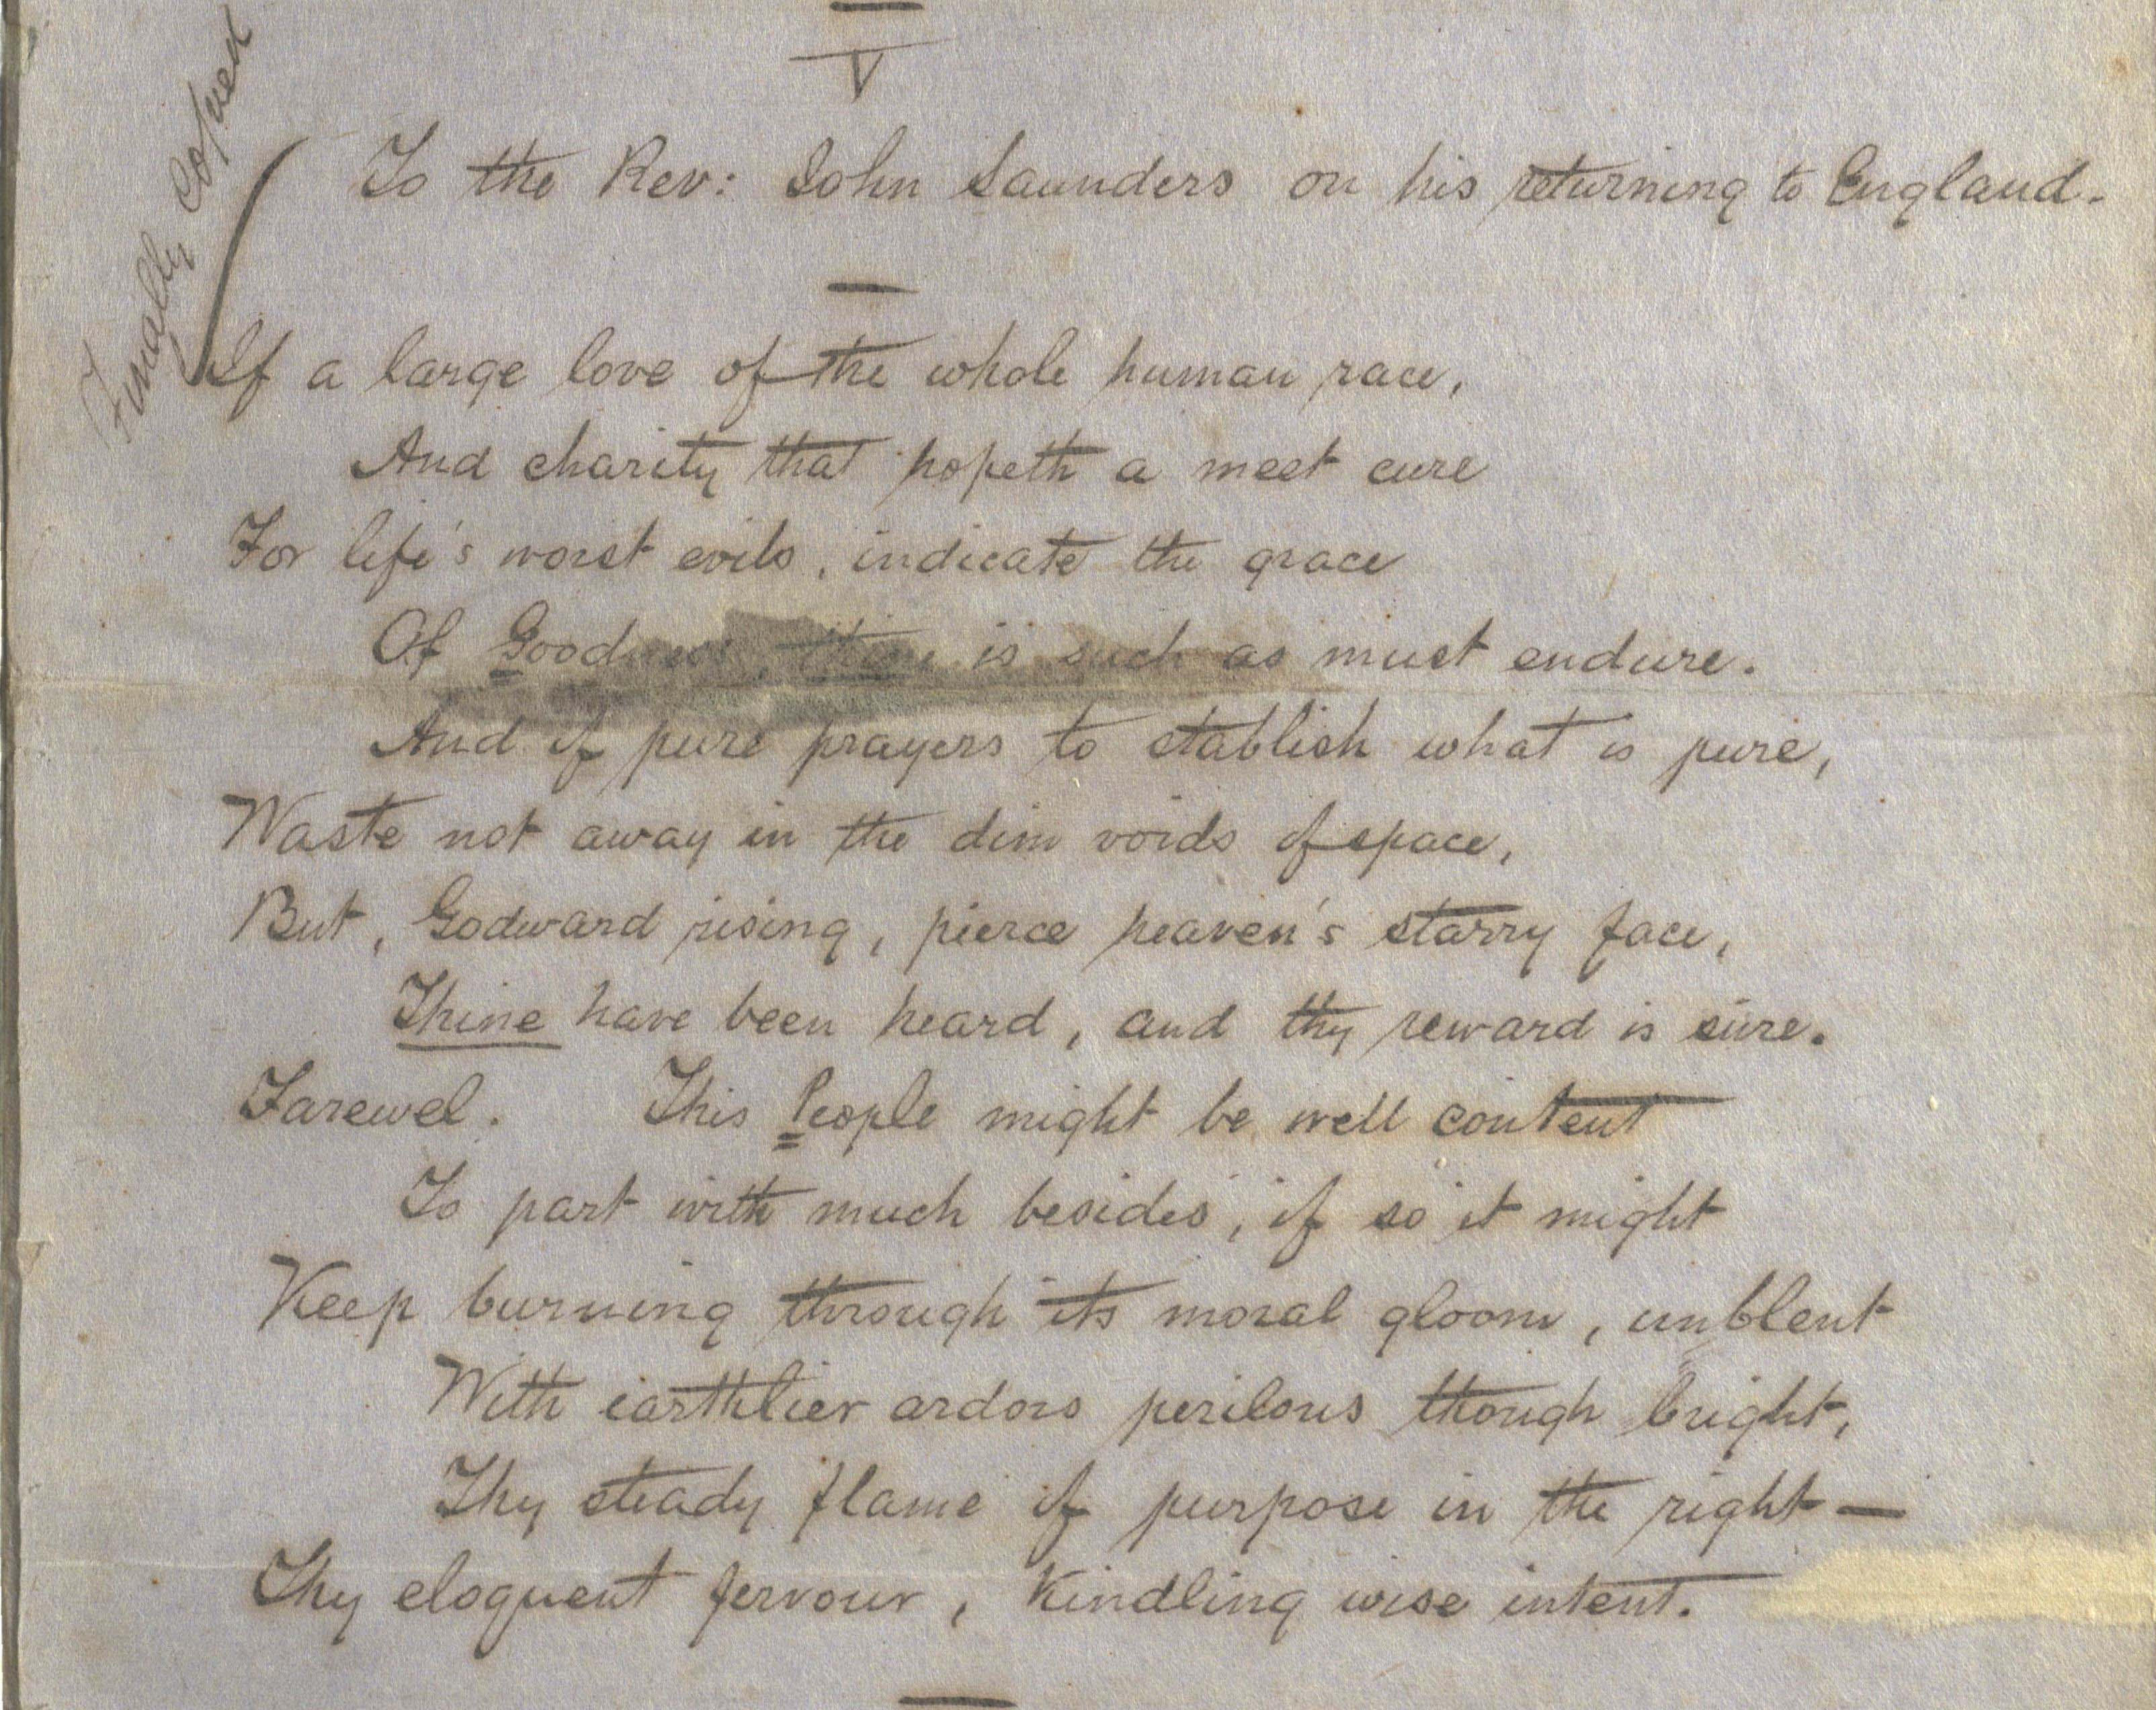 V
Finally Copied
To the Rev: John Saunders on his returning to England.
If a large love of the whole human race,
And charity that hopeth a meet cure
For life's worst evils, indicate the grace
Of Goodness, thine is such as must endure.
And if pure prayers to stablish what is pure,
Waste not away in the dim voids of space,
But, Godward rising, pierce heaven's starry face,
Thine have been heard, and thy reward is sure.
Farewel. This People might be well content
To part with much besides, if so it might
Keep burning through its moral gloom, unblent
With earthlier ardors perilous though bright,
Thy steady flame of purpose in the right—
Thy eloquent fervour, kindling wise intent.